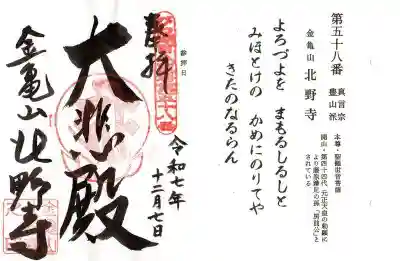 第五十八番
真言宗
豊山派
金亀山 北野寺
本尊・聖観世音菩薩
開山・第四十四代、元正天皇の勅願に
より藤原鎌足の孫「房前公」と
されている
よろづよを まもるしるしと
みほとけの かめにのりてや
きたのなるらん
参拝日
奉拝
令和七年
十二月七日
大悲殿
金亀山北野寺